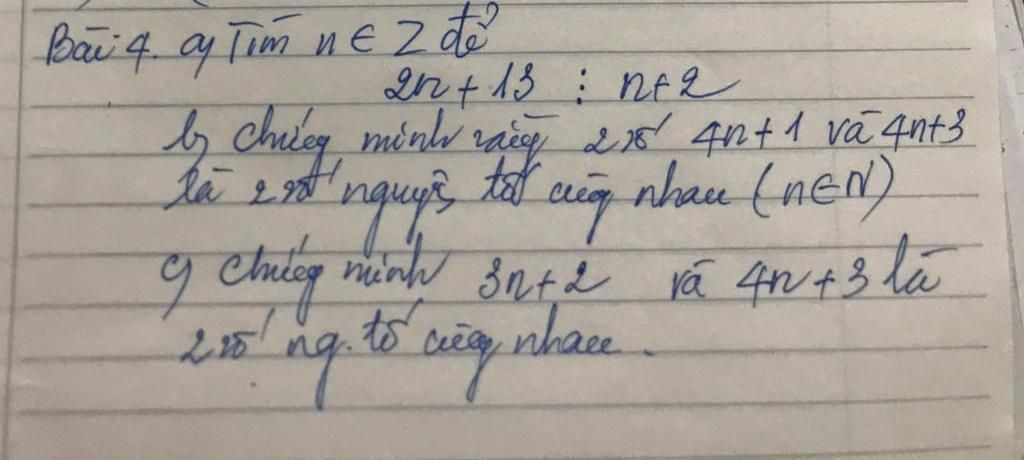 Bài 4. a, Tìm n ∈ Z để
2n + 13 ⋮ n+2
b, chứng minh rằng 2 số 4n+1 và 4n+3
là 2 số nguyên tố cùng nhau (n∈N)
c, chứng minh 3n+2 và 4n+3 là
2 số ng. tố cùng nhau.